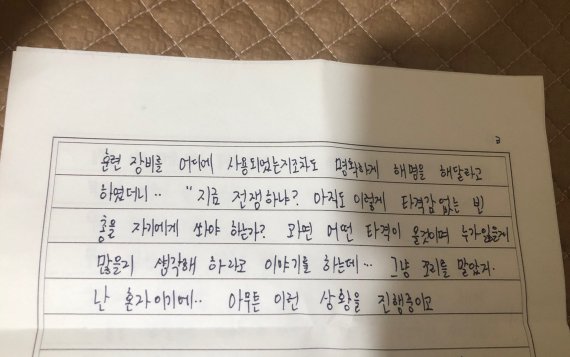 3
훈련 장비를 어디에 사용되었는지조차도 명확하게 해명을 해달라고
하였더니·· "지금 전쟁하냐? 아직도 이렇게 타격감 없는 빈
총을 자기에게 쏴야 하는가? 과연 어떤 타격이 올것이며 누가
많을지 생각해 하라고 이야기를 하는데··· 그냥 말았지.
난 혼자이기에·· 아무튼 이런 상황을 진행중이고